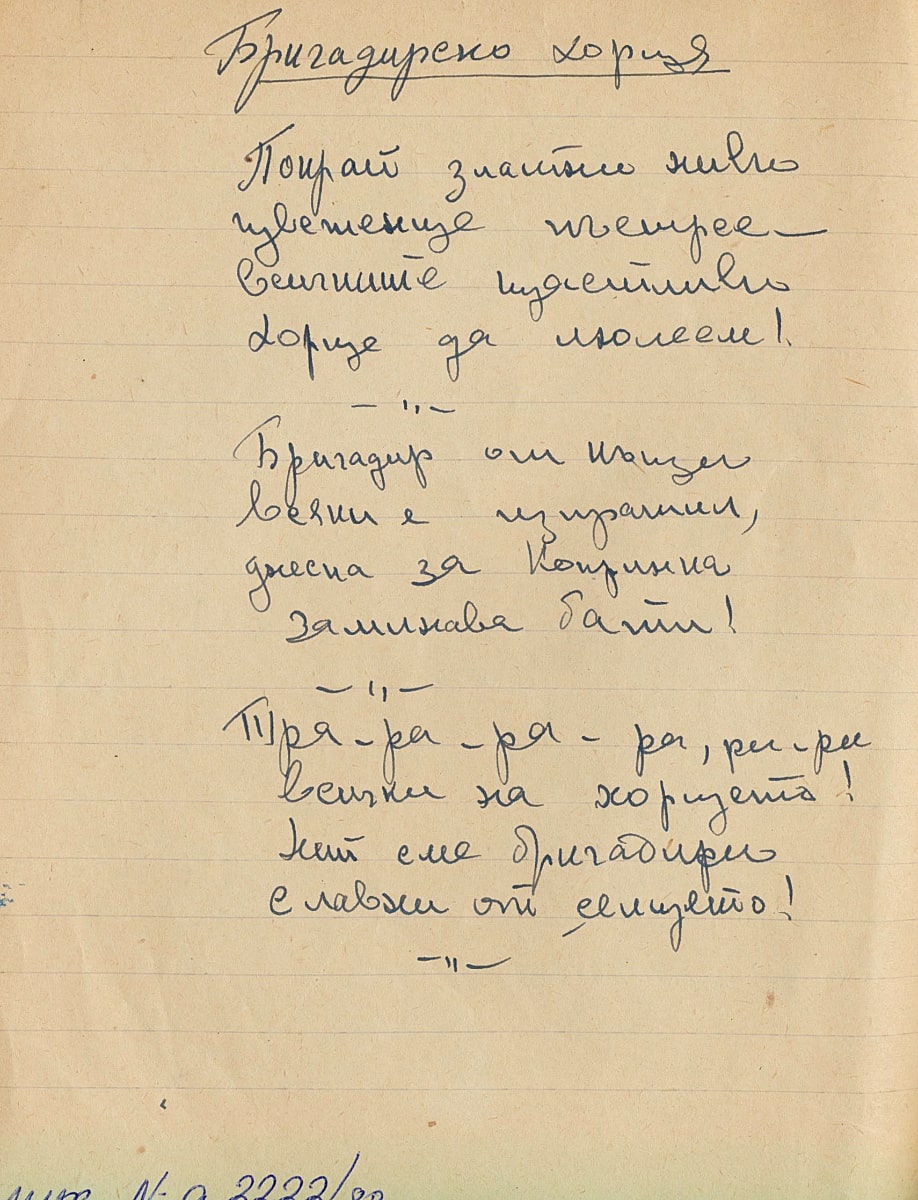 Бригадирско хорце
Покрай златни ниви
цветенце пъстрее —
всичките щастливи
хорце да люлеем!
— " —
Бригадир от къщи
всеки е изпратил,
днеска за Копринка
заминава бати!
— " —
Тра-ра-ра-ра, ри-ри
всички на хорцето!
Ний сме бригадири
славни от селцето!
— " —